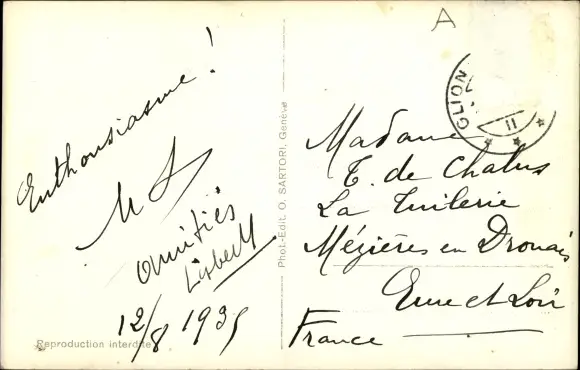 A
Enthousiasme !
amitiés
12/8 1935
Reproduction interdite
Phot.-Edit. O. SARTORI, Genève
GLION
II
Madame
T. de Chalus
La Tuilerie
Mézières en Drouais
Eure et Loir
France